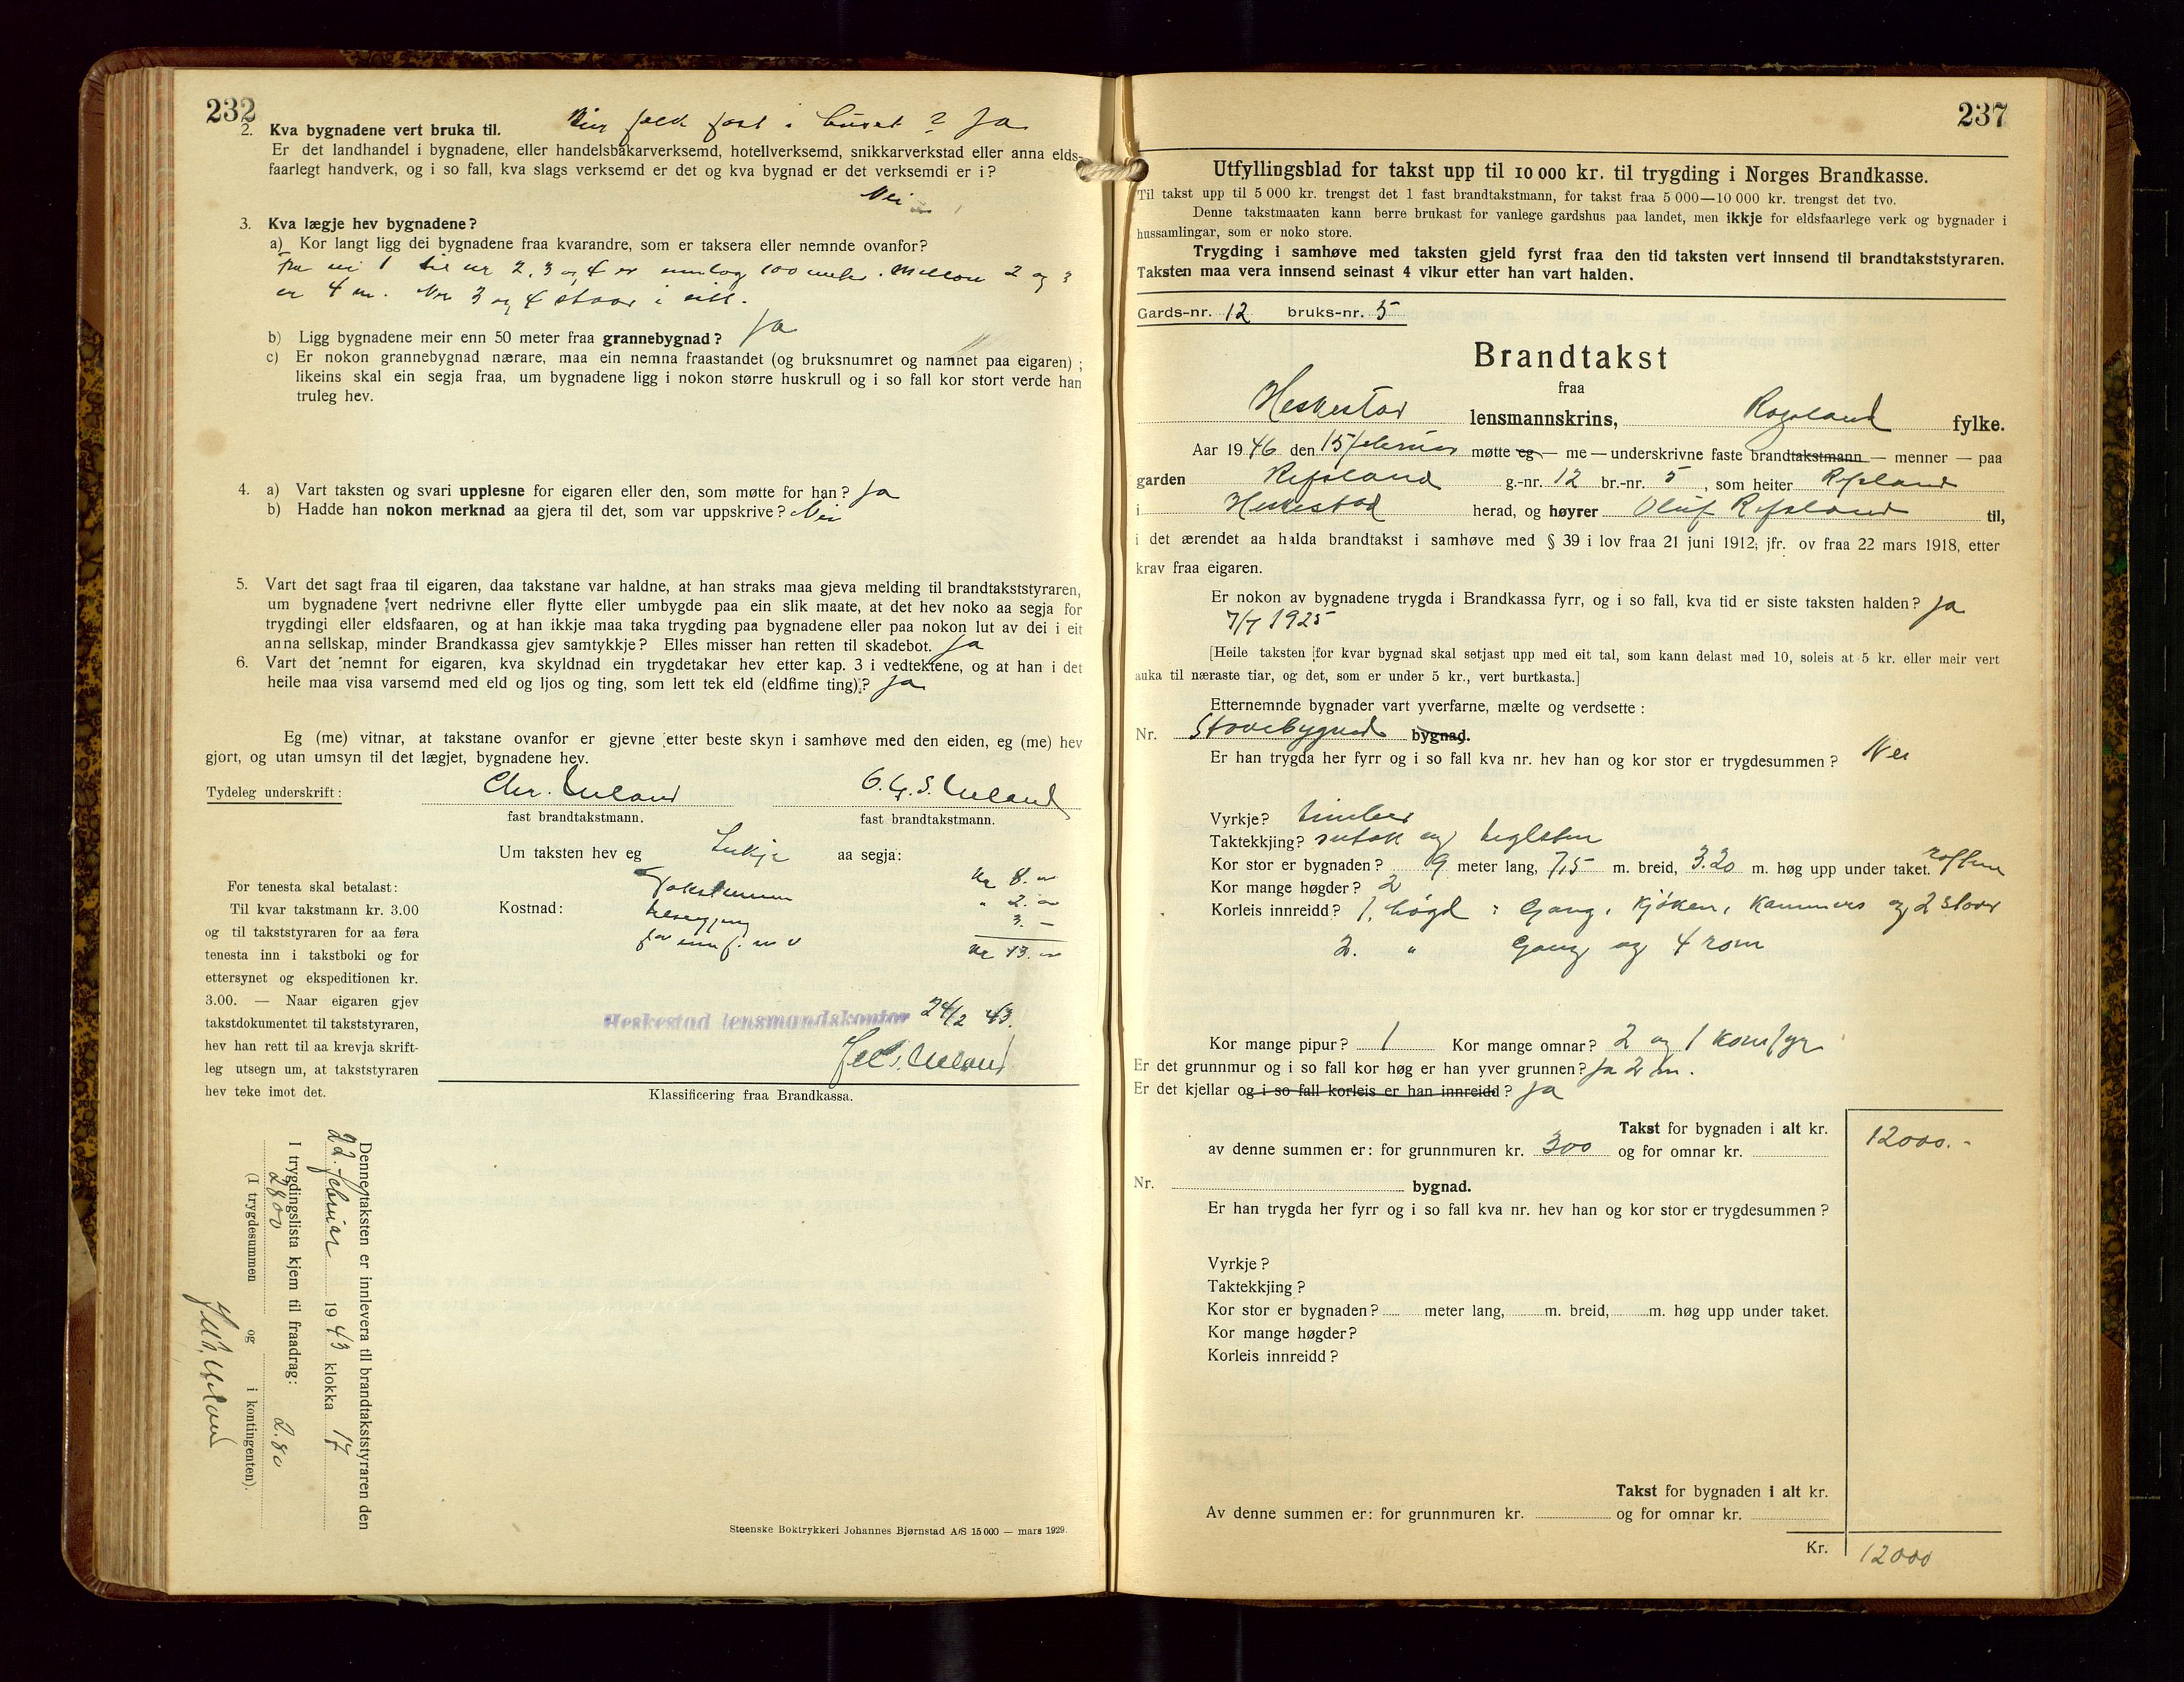 232
2. Kva bygnadene vert bruka til. Bur folk fast i huset? Ja
Er det landhandel i bygnadene, eller handelsbakarverksemd, hotellverksemd, snikkarverkstad eller anna elds-
faarlegt handverk, og i so fall, kva slags verksemd er det og kva bygnad er det verksemdi er i?
Nei
3. Kva lægje hev bygnadene?
a) Kor langt ligg dei bygnadene fraa kvarandre, som er taksera eller nemnde ovanfor?
Fra nr 1 til nr 2, 3 og 4 er umlag 100 meter. Millom 2 og 3
er 4 m. Nr 3 og 4 staar i eitt.
b) Ligg bygnadene meir enn 50 meter fraa grannebygnad? Ja
c) Er nokon grannebygnad nærare, maa ein nemna fraastandet (og bruksnumret og namnet paa eigaren) ;
likeins skal ein segja fraa, um bygnadene ligg i nokon større huskrull og i so fall kor stort verde han
truleg hev.
4. a) Vart taksten og svari upplesne for eigaren eller den, som møtte for han? Ja
b) Hadde han nokon merknad aa gjera til det, som var uppskrive? Nei
5. Vart det sagt fraa til eigaren, daa takstane var haldne, at han straks maa gjeva melding til brandtakststyraren,
um bygnadene vert nedrivne eller flytte eller umbygde paa ein slik maate, at det hev noko aa segja for
trygdingi eller eldsfaaren, og at han ikkje maa taka trygding paa bygnadene eller paa nokon lut av dei i eit
anna sellskap, minder Brandkassa gjev samtykkje? Elles misser han retten til skadebot. Ja
6. Vart det nemnt for eigaren, kva skyldnad ein trygdetakar hev etter kap. 3 i vedtektene, og at han i det
heile maa visa varsemd med eld og ljos og ting, som lett tek eld (eldfime ting)? Ja
Eg (me) vitnar, at takstane ovanfor er gjevne etter beste skyn i samhøve med den eiden, eg (me) hev
gjort, og utan umsyn til det lægjet, bygnadene hev.
Tydeleg underskrift: Chr. Ueland O. G. S. Ueland
fast brandtakstmann. fast brandtakstmann.
Um taksten hev eg Inkje aa segja:
Kostnad: Takstmenn kr 8. "
" 2. "
3. –
kr 13. "
For tenesta skal betalast:
Til kvar takstmann kr. 3.00
og til takststyraren for aa føra
tenesta inn i takstboki og for
ettersynet og ekspeditionen kr.
3.00. — Naar eigaren gjev
takstdokumentet til takststyraren,
hev han rett til aa krevja skrift-
leg utsegn um, at takststyraren
hev teke imot det.
Heskestad lensmandskontor 24/2 43.
Ueland
Klassificering fraa Brandkassa.
Denne taksten er innlevera til brandtakststyraren den
22. februar 1943 klokka 17
I trygdingslista kjem til fraadrag:
2800 2.80
(I trygdesummen og i kontingenten).
Ueland
Steenske Boktrykkeri Johannes Bjørnstad A/S 15 000 — mars 1929.
237
Utfyllingsblad for takst upp til 10 000 kr. til trygding i Norges Brandkasse.
Til takst upp til 5 000 kr. trengst det 1 fast brandtakstmann, for takst fraa 5 000—10 000 kr. trengst det tvo.
Denne takstmaaten kann berre brukast for vanlege gardshus paa landet, men ikkje for eldsfaarlege verk og bygnader i
hussamlingar, som er noko store.
Trygding i samhøve med taksten gjeld fyrst fraa den tid taksten vert innsend til brandtakststyraren.
Taksten maa vera innsend seinast 4 vikur etter han vart halden.
Gards-nr. 12 bruks-nr. 5
Brandtakst
fraa
Heskestad lensmannskrins, Rogaland fylke.
Aar 1946 den 15 februar møtte eg — me — underskrivne faste brandtakstmann — menner — paa
garden Refsland g.-nr. 12 br.-nr. 5, som heiter Refsland
i Heskestad herad, og høyrer Oluf Refsland til,
i det ærendet aa halda brandtakst i samhøve med § 39 i lov fraa 21 juni 1912; jfr. ov fraa 22 mars 1918, etter
krav fraa eigaren.
Er nokon av bygnadene trygda i Brandkassa fyrr, og i so fall, kva tid er siste taksten halden? Ja
7/7 1925
[Heile taksten for kvar bygnad skal setjast upp med eit tal, som kann delast med 10, soleis at 5 kr. eller meir vert
auka til næraste tiar, og det, som er under 5 kr., vert burtkasta.]
Etternemnde bygnader vart yverfarne, mælte og verdsette :
Nr. Stovebygnad bygnad.
Er han trygda her fyrr og i so fall kva nr. hev han og kor stor er trygdesummen? Nei
Vyrkje? timber
Taktekkjing? sutak og teglsten
Kor stor er bygnaden? 9 meter lang, 7,5 m. breid, 3.20 m. høg upp under taket. roften
Kor mange høgder? 2
Korleis innreidd? 1. høgd : Gang, kjøken, kammers og 2 stover
2. " Gang og 4 rom
Kor mange pipur? 1 Kor mange omnar? 2 og 1 komfyr
Er det grunnmur og i so fall kor høg er han yver grunnen? Ja 2 m.
Er det kjellar og i so fall korleis er han innreidd? Ja
Takst for bygnaden i alt kr. 12000.-
av denne summen er: for grunnmuren kr. 300 og for omnar kr.
Nr. bygnad.
Er han trygda her fyrr og i so fall kva nr. hev han og kor stor er trygdesummen?
Vyrkje?
Taktekkjing?
Kor stor er bygnaden? meter lang, m. breid, m. høg upp under taket.
Kor mange høgder?
Korleis innreidd?
Takst for bygnaden i alt kr.
Av denne summen er: for grunnmuren kr. og for omnar kr.
Kr. 12000